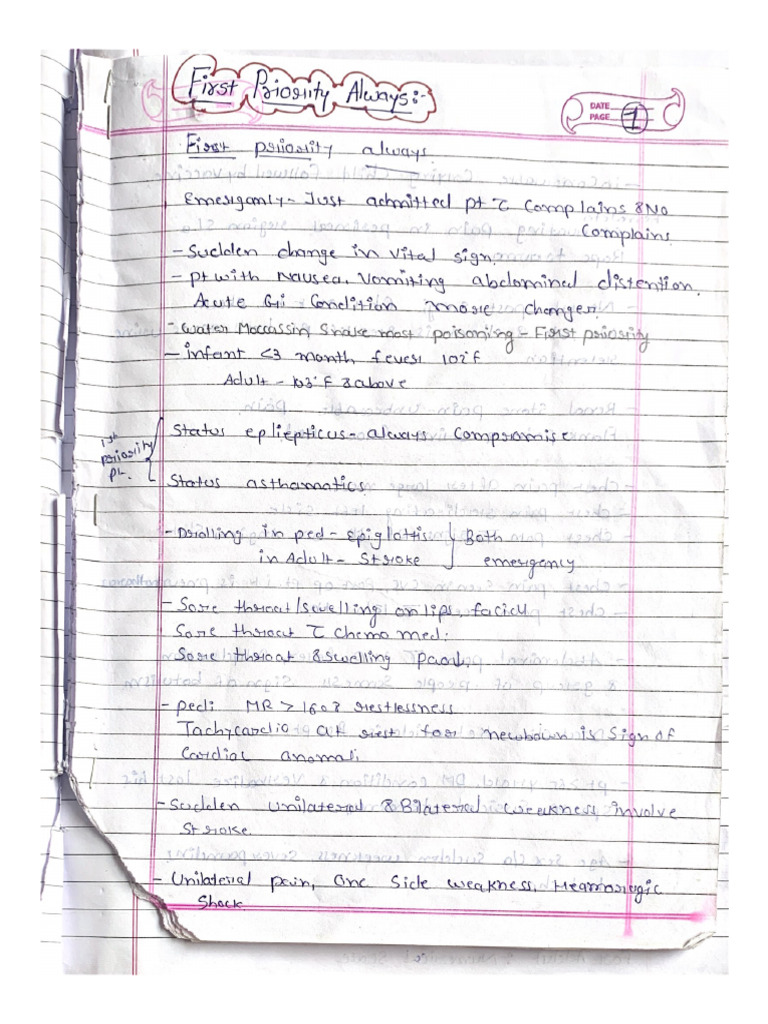 First Priority Always:-
DATE
PAGE 1
First priority always.
Emergancy- Just admitted pt c̄ Complains & No
Complains.
- Sudden change in Vital sign.
- pt with Nausea. Vomiting abdomined distention.
Acute Gi Condition more changes.
- Water Moccassin Snake most poisoning - First priority
- infant <3 month fever 102°F
Adult - 103°F & above
1st priority pt.
Status epliepticus - always Compromise
Status asthamatics.
- Drolling in ped - Epiglottis } Both
in Adult - Stroke } emergency
- Sore throat/swelling on lips, facial
Sore throat c̄ chemo med:
Sore throat & swelling
- pedi HR > 160 & restlessness
Tachycardio at rest for newbown is Sign of
Cardial anomali
- Sudden unilateral & Bilateral weakness involve
Stroke.
- Unilateral pain, one side weakness. Hemorrogic
Shock.